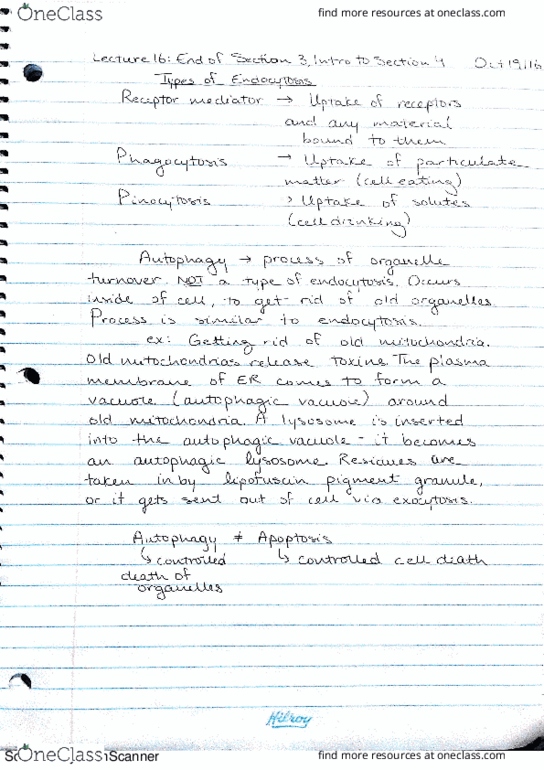 OneClass
find more resources at oneclass.com
Lecture 16: End of Section 3, Intro to Section 4 Oct 19/16
Types of Endocytosis
Receptor mediator → Uptake of receptors
and any material
bound to them
Phagocytosis → Uptake of particulate
matter (cell eating)
Pinocytosis → Uptake of solutes
(cell drinking)
Autophagy → process of organelle
turnover. NOT a type of endocytosis. Occurs
inside of cell, to get rid of old organelles
Process is similar to endocytosis.
ex: Getting rid of old mitochondria.
Old mitochondrias release toxins. The plasma
membrane of ER comes to form a
vacuole (autophagic vacuole) around
old mitochondria. A lysosome is inserted
into the autophagic vacuole - it becomes
an autophagic lysosome. Residues are
taken in by lipofuscin pigment granule,
or it gets sent out of cell via exocytosis.
Autophagy ≠ Apoptosis
↳ controlled ↳ controlled cell death
death of
organelles
Hilroy
OneClass
Scanner
find more resources at oneclass.com